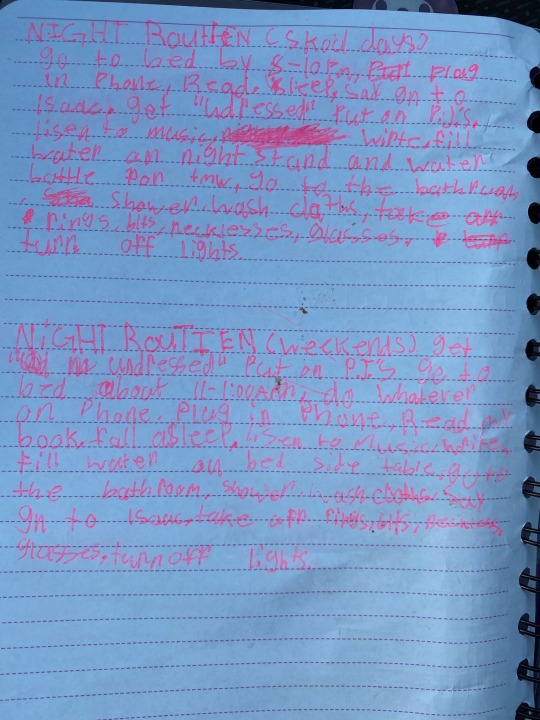 NIGHT ROUTIEN (skoil days)
go to bed by 8-10pm, plug
in Phone, Read, sleep, say gn to
Isaac, get "udressed" Put on PJ's,
lisen to music, wirte, fill
water on night stand and water
bottle for tmw, go to the bathroom
, shower, wash cloths, take off
rings, blts, necklesses, glasses,
turn off lights.
NIGHT ROUTIEN (weekends) get
undressed" Put on PJ'S go to
bed about 11-1:00AM, do whatever
on Phone, Plug in Phone, Read
book, fall asleep, lisen to music, write,
fill water on bed side table, go to
the bathroom, shower, wash cloths, say
gn to Isaac, take off rings, blts,
glasses, turn off lights.